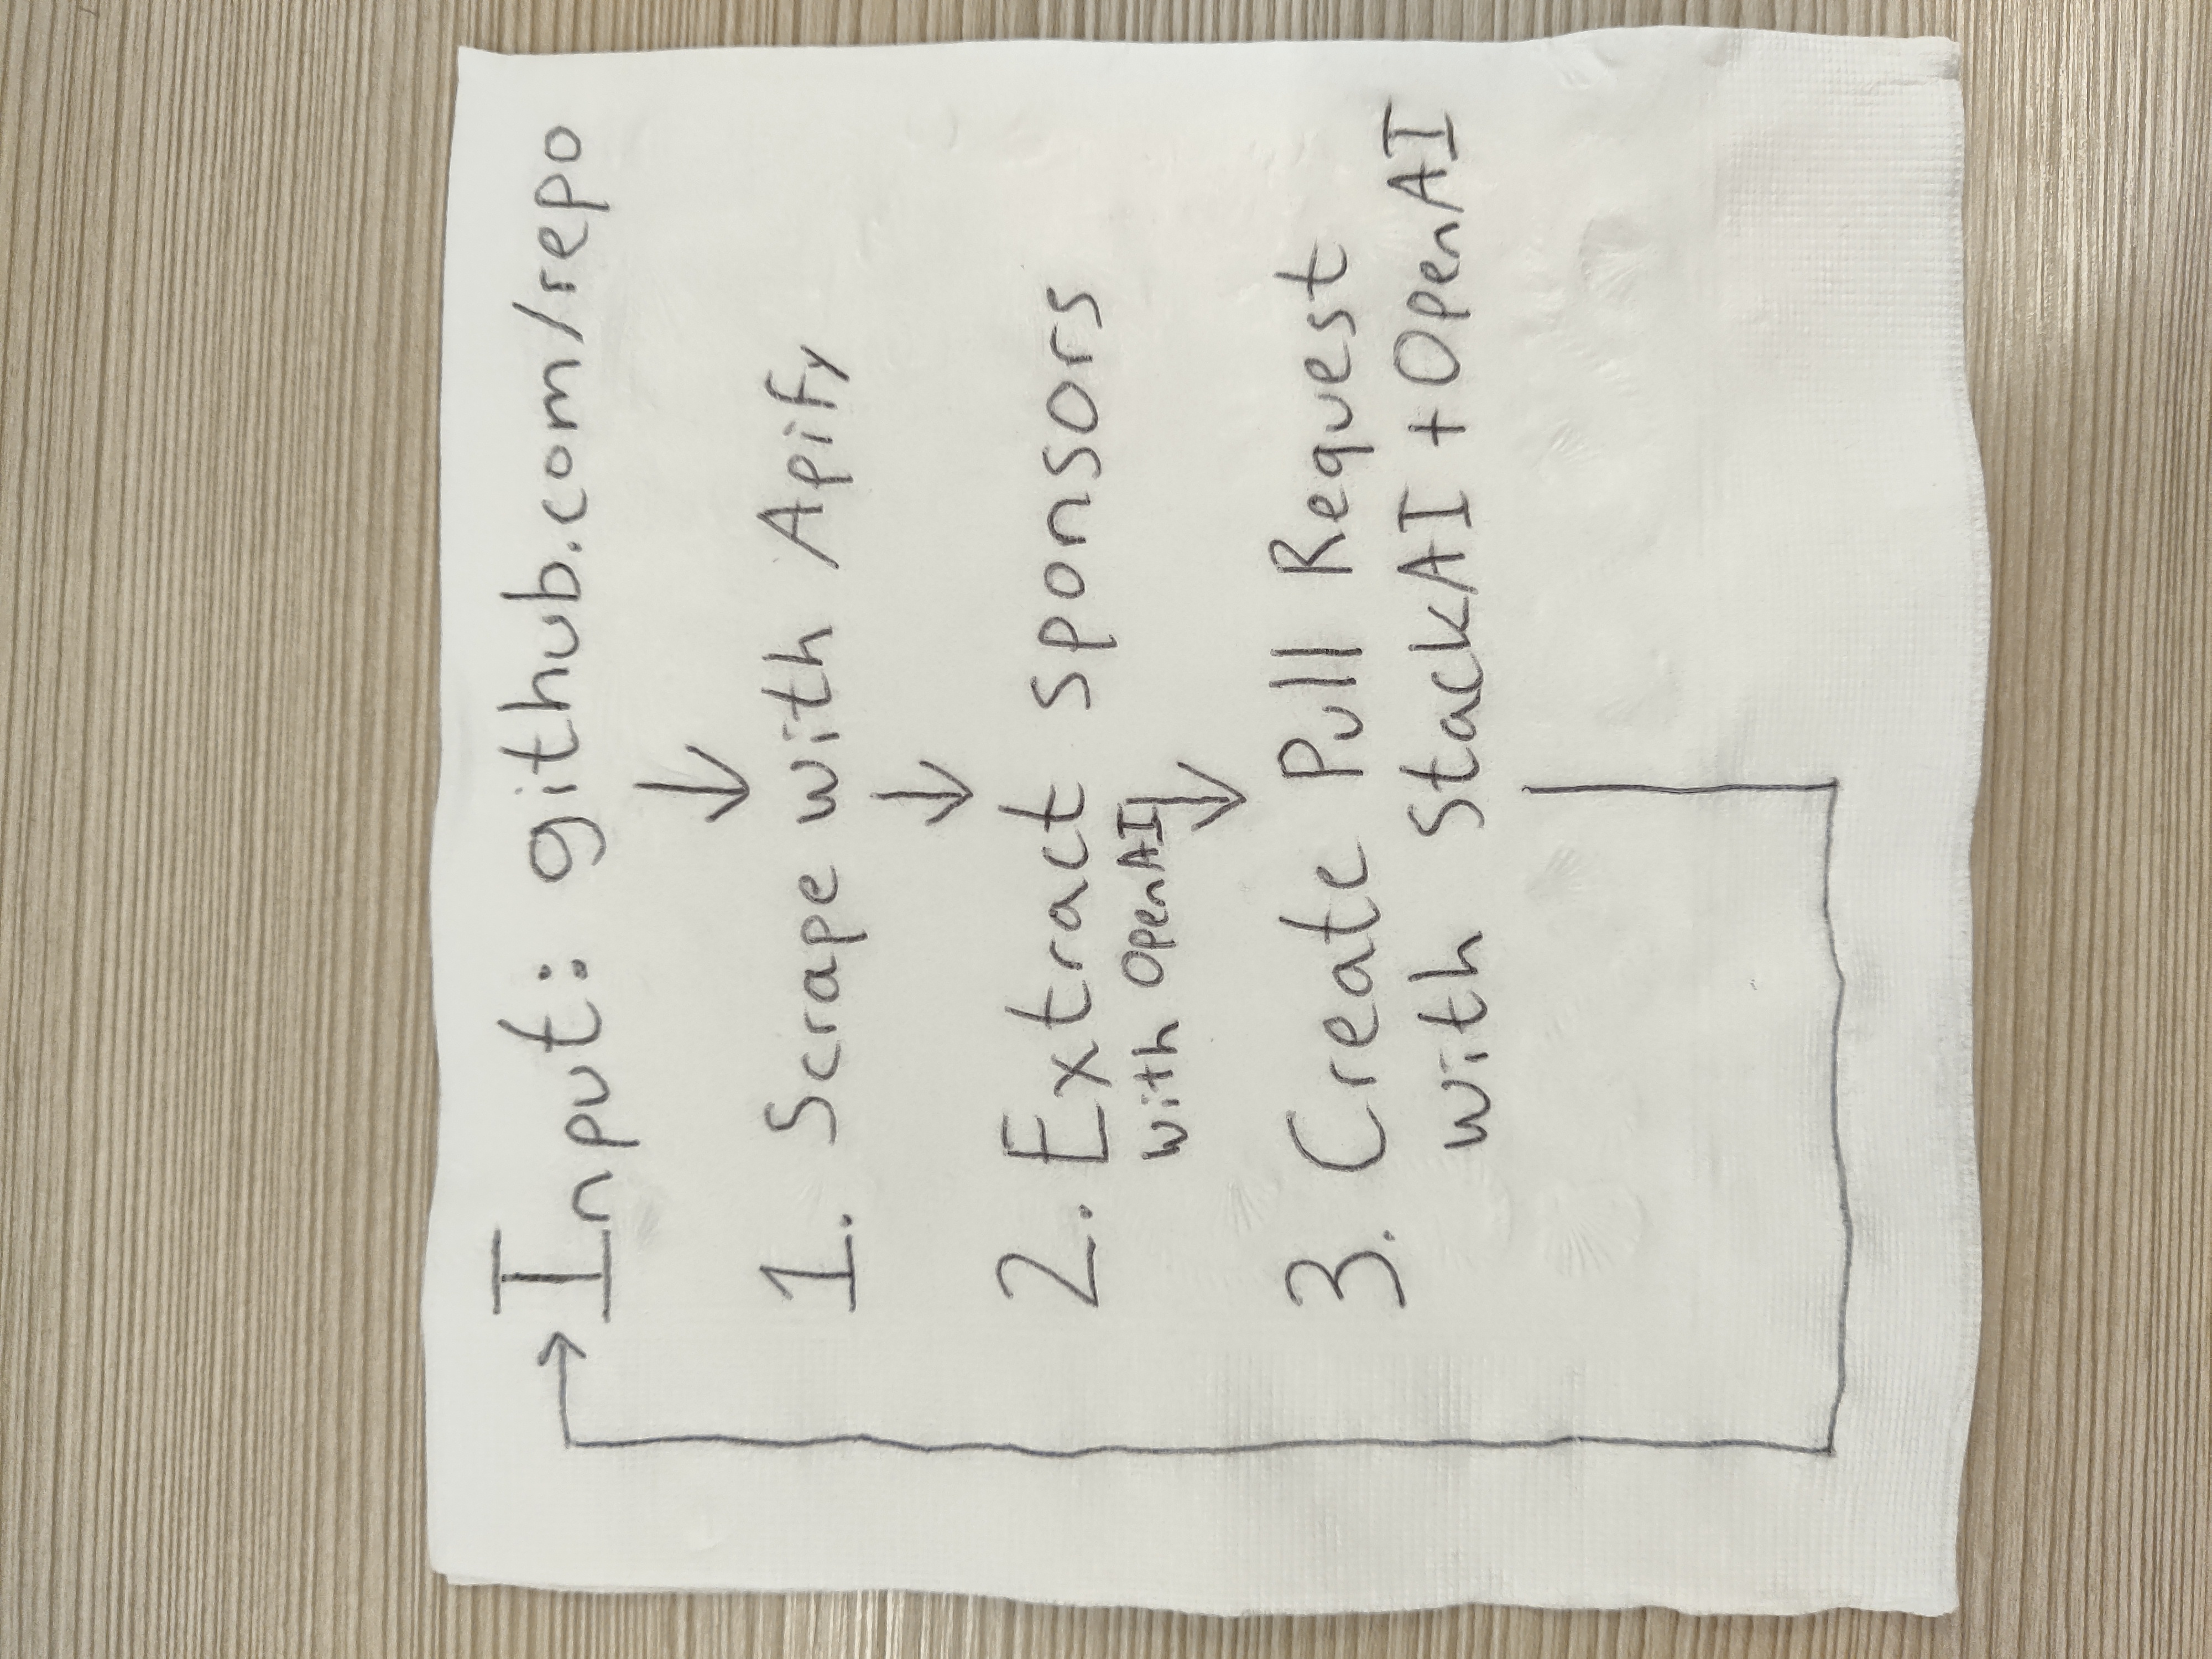 Input: github.com/repo
1. Scrape with Apify
2. Extract sponsors
with OpenAI
3. Create Pull Request
with StackAI + OpenAI